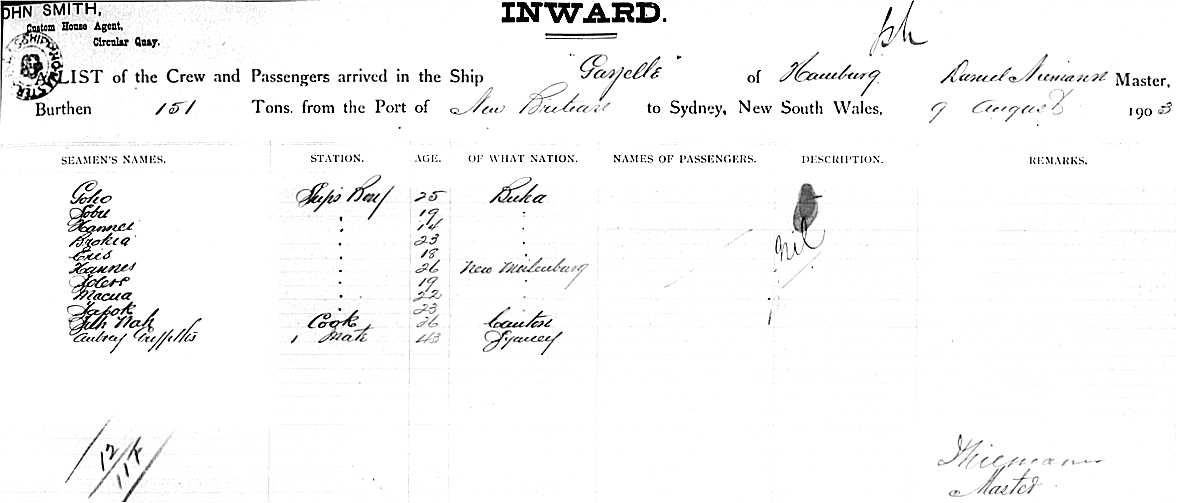 OHN SMITH,
Custom House Agent,
Circular Quay.
INWARD.
A LIST of the Crew and Passengers arrived in the Ship "Gazelle" of Hamburg Daniel Niemann Master,
Burthen 151 Tons. from the Port of New Britain to Sydney, New South Wales, 9 August 1903
SEAMEN'S NAMES. STATION. AGE. OF WHAT NATION. NAMES OF PASSENGERS. DESCRIPTION. REMARKS.
Goho Ships Boy 25 Buka
Sobu " 19 "
Hannes " 14 "
Brokea " 23 "
Eris " 18
Hannes " 26 New
" 19 "
Macua " 22
23
Nah Cook 26 Canton
Aubrey Griffiths 1 Mate 43 Sydney
nil
12
11
DNiemann
Master